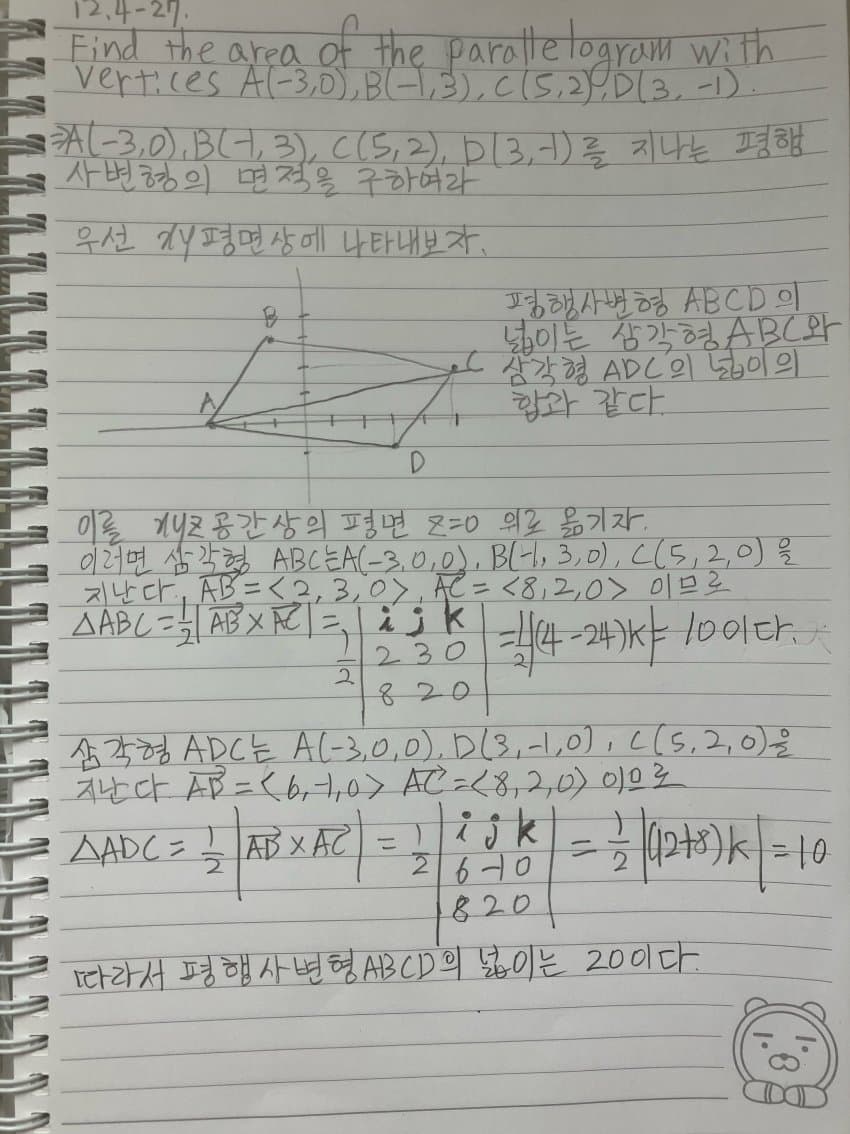 12.4-27.
Find the area of the parallelogram with
vertices A(-3,0), B(-1,3), C(5,2), D(3,-1).
⇒A(-3,0), B(-1,3), C(5,2), D(3,-1)를 지나는 평행
사변형의 면적을 구하여라
우선 xy평면상에 나타내보자.
B
C
A
D
평행사변형 ABCD의
넓이는 삼각형 ABC와
삼각형 ADC의 넓이의
합과 같다.
이를 xyz공간상의 평면 z=0 위로 옮기자.
이러면 삼각형 ABC는A(-3,0,0), B(-1,3,0), C(5,2,0)을
지난다. AB→=<2,3,0>, AC→=<8,2,0> 이므로
△ABC=1/2|AB→×AC→|=1/2|i j k; 2 3 0; 8 2 0|=1/2|(4-24)k|=10이다.
삼각형 ADC는 A(-3,0,0), D(3,-1,0), C(5,2,0)을
지난다 AD→=<6,-1,0> AC→=<8,2,0> 이므로
△ADC=1/2|AD→×AC→|=1/2|i j k; 6 -1 0; 8 2 0|=1/2|(12+8)k|=10
따라서 평행사변형ABCD의 넓이는 20이다.